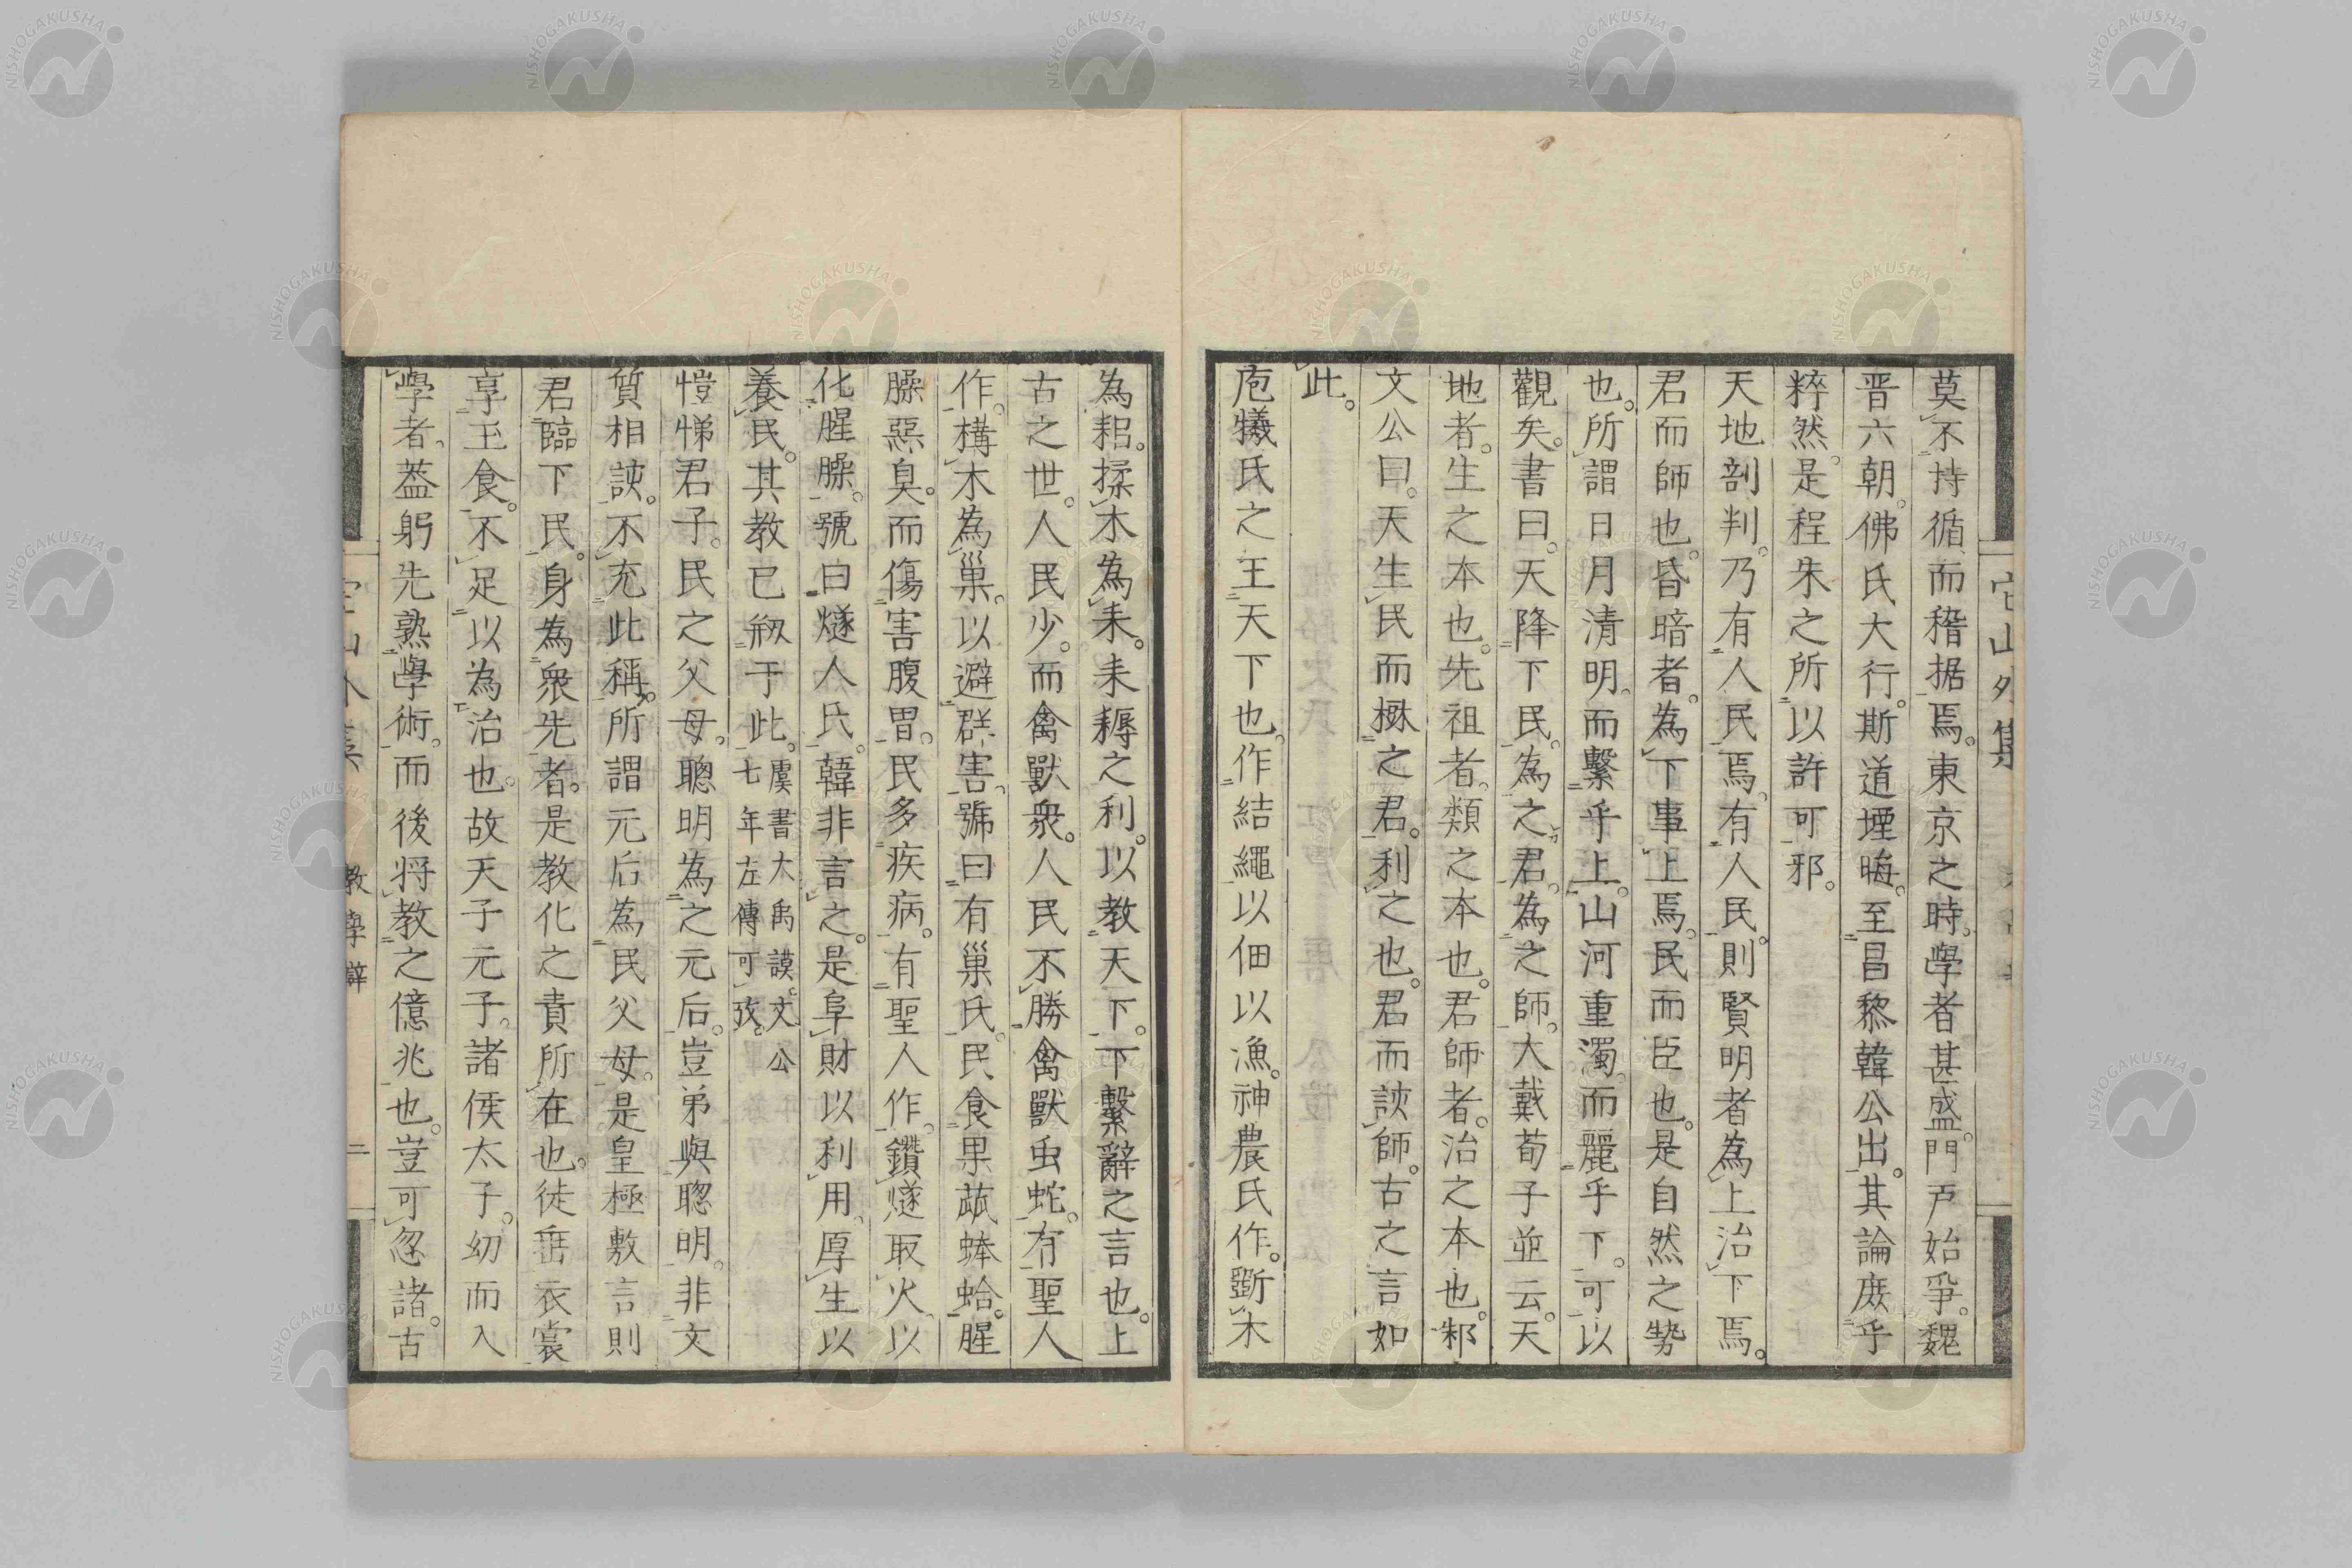 莫不持循而稽据焉。東京之時。學者甚盛。門戸始爭。魏
晋六朝。佛氏大行。斯道堙晦。至昌黎韓公出。其論庶乎
粹然。是程朱之所以許可邪。
天地剖判。乃有人民焉。有人民。則賢明者為上治下焉。
君而師也。昏暗者。為下事上焉。民而臣也。是自然之勢
也。所謂日月清明。而繫乎上。山河重濁。而麗乎下。可以
觀矣。書曰。天降下民。為之君。為之師。大戴荀子並云。天
地者。生之本也。先祖者。類之本也。君師者。治之本也。邾
文公曰。天生民而樹之君。利之也。君而誨師。古之言如
此。
庖犧氏之王天下也。作結繩以佃以漁。神農氏作。斲木
為耜。揉木為耒。耒耨之利。以教天下。下繫辭之言也。上
古之世。人民少。而禽獸衆。人民不勝禽獸虫蛇。有聖人
作。構木為巢。以避群害。號曰有巢氏。民食果蓏蜯蛤。腥
臊惡臭。而傷害腹胃。民多疾病。有聖人作。鑽燧取火。以
化腥臊。號曰燧人氏。韓非言之。是阜財以利用。厚生以
養民。其教已剏于此。虞書大禹謨。文公七年左傳可攷。
愷悌君子。民之父母。聰明為之元后。豈弟與聰明。非文
質相詇。不充此稱。所謂元后為民父母。是皇極敷言則
君臨下民。身為衆先者。是教化之責所在也。徒垂衣裳
享玉食。不足以為治也。故天子元子。諸侯太子。幼而入
學者。蓋躬先熟學術。而後将教之億兆也。豈可忽諸。古
教學辯
二